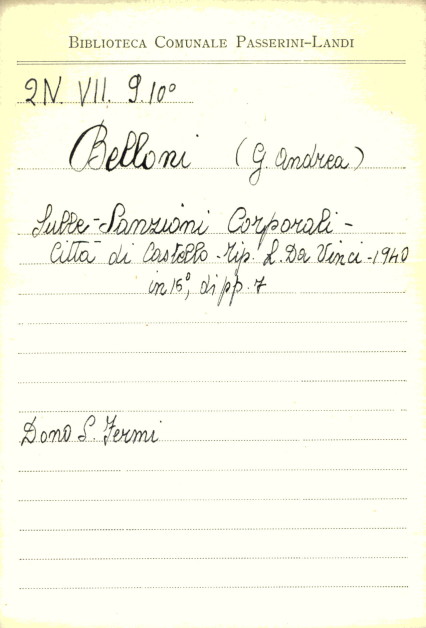 BIBLIOTECA COMUNALE PASSERINI-LANDI
2N. VII. 9.10°
Belloni (G. Andrea)
Sulle Sanzioni Corporali -
Città di Castello - Tip. L. Da Vinci - 1940
in 15°, di pp. 7
Dono S. Fermi